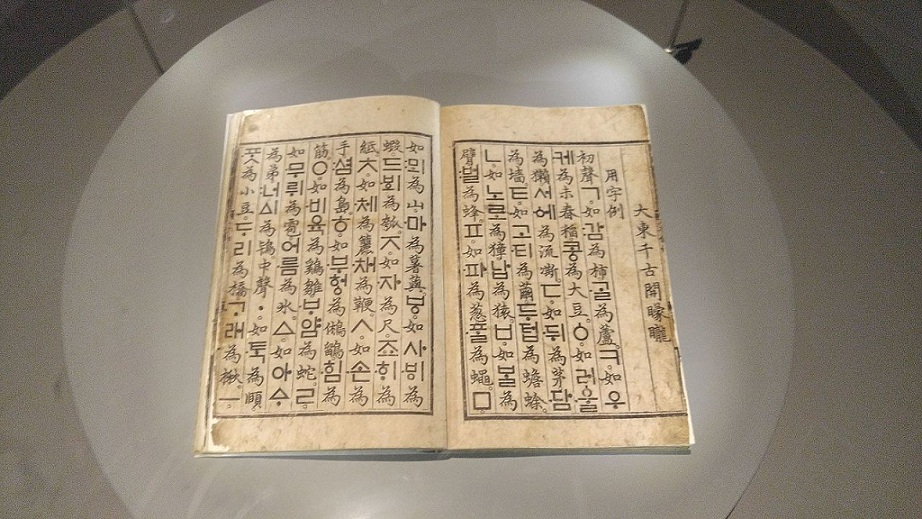 大東千古開矇矓
用字例
初聲ㄱ。如감為柿。ᄀᆞᆯ為蘆。ㅋ。如우
케為未舂稻。코ᇰ為大豆。ㆁ。如러ᅌᅮᆯ
為獺。서ᅌᅦ為流凘。ㄷ。如뒤為茅。담
為墻。ㅌ。如고티為繭。두텁為蟾蜍。
ㄴ。如노로為獐。납為猿。ㅂ。如ᄇᆞᆯ為
臂。벌為蜂。ㅍ。如파為葱。ᄑᆞᆯ為蠅。ㅁ。
如뫼為山。마為薯藇。ㅸ。如사ᄫᅵ為
蝦。드ᄫᅴ為瓠。ㅈ。如자為尺。죠ᄒᆡ為
紙。ㅊ。如체為籭。채為鞭。ㅅ。如손為
手。셤為島。ㅎ。如부허ᇰ為鵂鶹。힘為
筋。ㅇ。如비육為鷄雛。ᄇᆞ얌為蛇。ㄹ。
如무뤼為雹。어름為氷。ㅿ。如아ᅀᆞ
為弟。너ᅀᅵ為鴇。中聲ㆍ。如ᄐᆞᆨ為頤。
ᄑᆞᆺ為小豆。ᄃᆞ리為橋。ᄀᆞ래為楸。ㅡ。